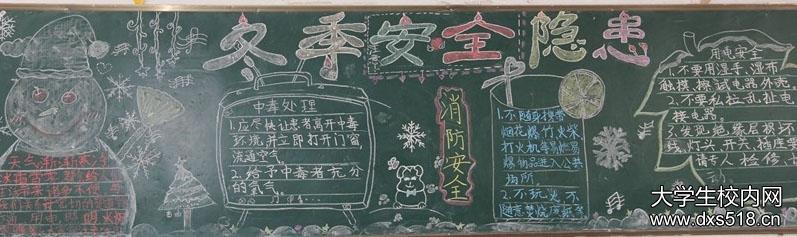 冬季安全隐患
中毒处理
1.应尽快让患者离开中毒
环境并立即打开门窗
流通空气
2.给予中毒者充分
的氧气。
消防安全
1.不随身携带
烟花爆竹火柴
打火机等易燃易
爆物品进入公共
场所
2.不玩火不
随意焚烧废纸等
用电安全
1.不要用湿手、湿布
触摸、擦试电器外壳。
2.不要私拉乱扯电
接电器。
3.发现绝缘层损坏
线、灯头、开关、插座要
请专人检修,
大学生校内网
www.dxs518.cn